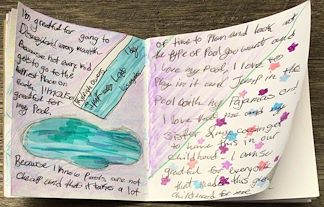 Im greatful for going to
Disneyland every month.
Because not every kid
gets to go to the
happiest place on
earth. I'm also
greatful for
my Pool.
Because I know Pools are not
Cheap and that it takes a lot
of time to Plan and look at
the type of Pool you want and
I love my Pool, I love to
Play in it and Jump in the
Pool with my Pajamas and
I love that me and my
Sister &
to have this in our
Childhood. I am so
greatful for everyone
that makes this
Childhood for me